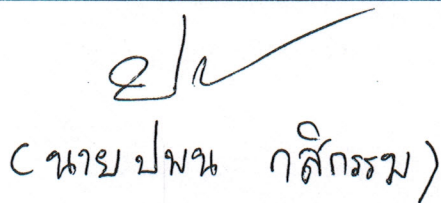 (นายปพน กสิกรรม)